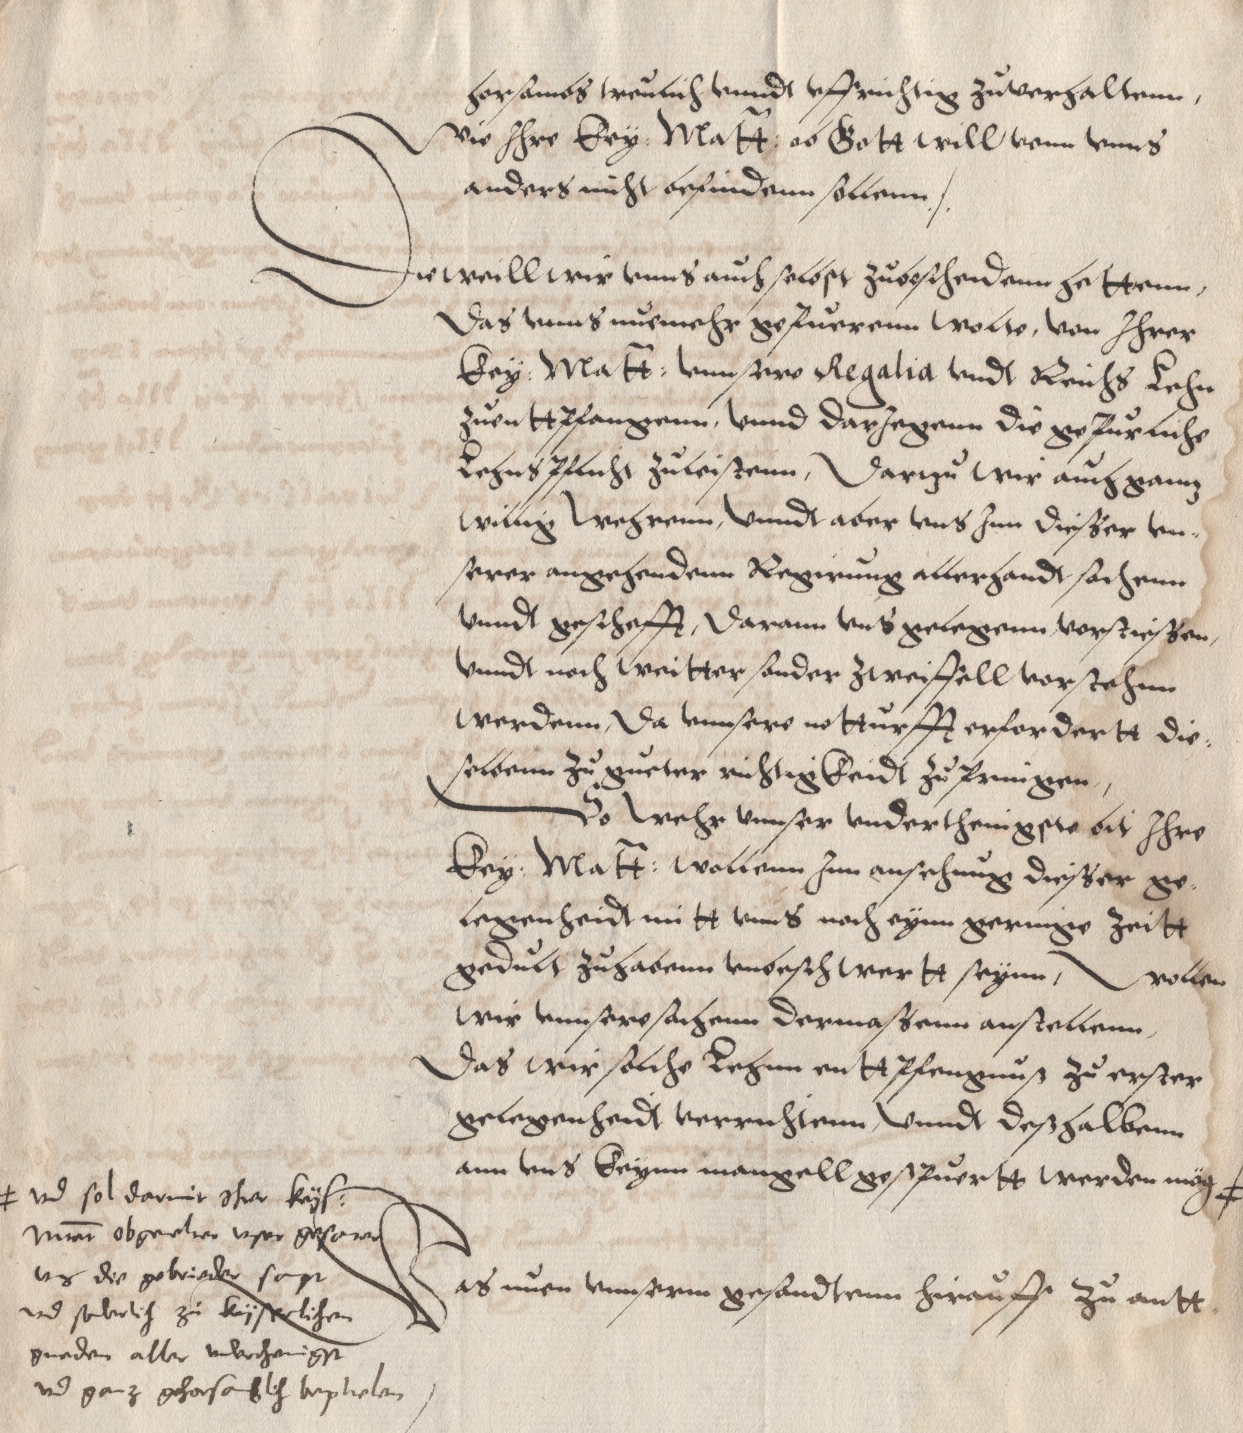 horsames treulich unndt uffrichtig zuverhaltenn,
Wie Ihre Key: Matt: ob Gott will venn unns
anders nicht befindenn sollenn ./.
Dieweill wir unns auch selbst zubescheidenn hettenn,
Das unns nuemehr gepuerenn wolte, von Ihrer
Key: Matt: unnsere Regalia undt Reichs Lehn
zuenttpfangenn, unnd darJegenn die gepurliche
Lehns Pflicht zuleistenn, Dartzu wir auch gantz
willig wehrenn, Unndt aber uns Jnn diesser un-
serer angehendenn Regirung allerhandt sachenn
unndt gescheffte, Darann uns gelegenn, vorstiessen,
unndt noch weitter sonder zweiffell vorstehnn
werdenn, Da unnsere notturfft erfordertt die-
selbenn zu gueter richtigkeidt zu pringen,
So wehr unnser underthenigste bit Ihre
Key: Matt: wollenn Jnn ansehung diesser ge-
legenheidt mitt unns noch eynn geringe zeitt
gedult zuhabenn unbeschwertt seynn, Wollen
wir unnsere sachenn dermassenn anstellenn,
Das wir solche Lehnn enttpfengnuß zu erster
gelegenheidt verrichtenn, Unndt deßhalbenn
ann uns keynn mangell gespuertt werden mög ‡
‡ und sol darmit Ihrer Keys:
Matt obgemelter unser gesanter
uns die gebrieder sampt
und sonderlich zu keyserlichen
gnaden aller underthenigst
und gantz gehorsamblich bephelen /
Was nuen unnserm gesandtenn hierauff zu antt